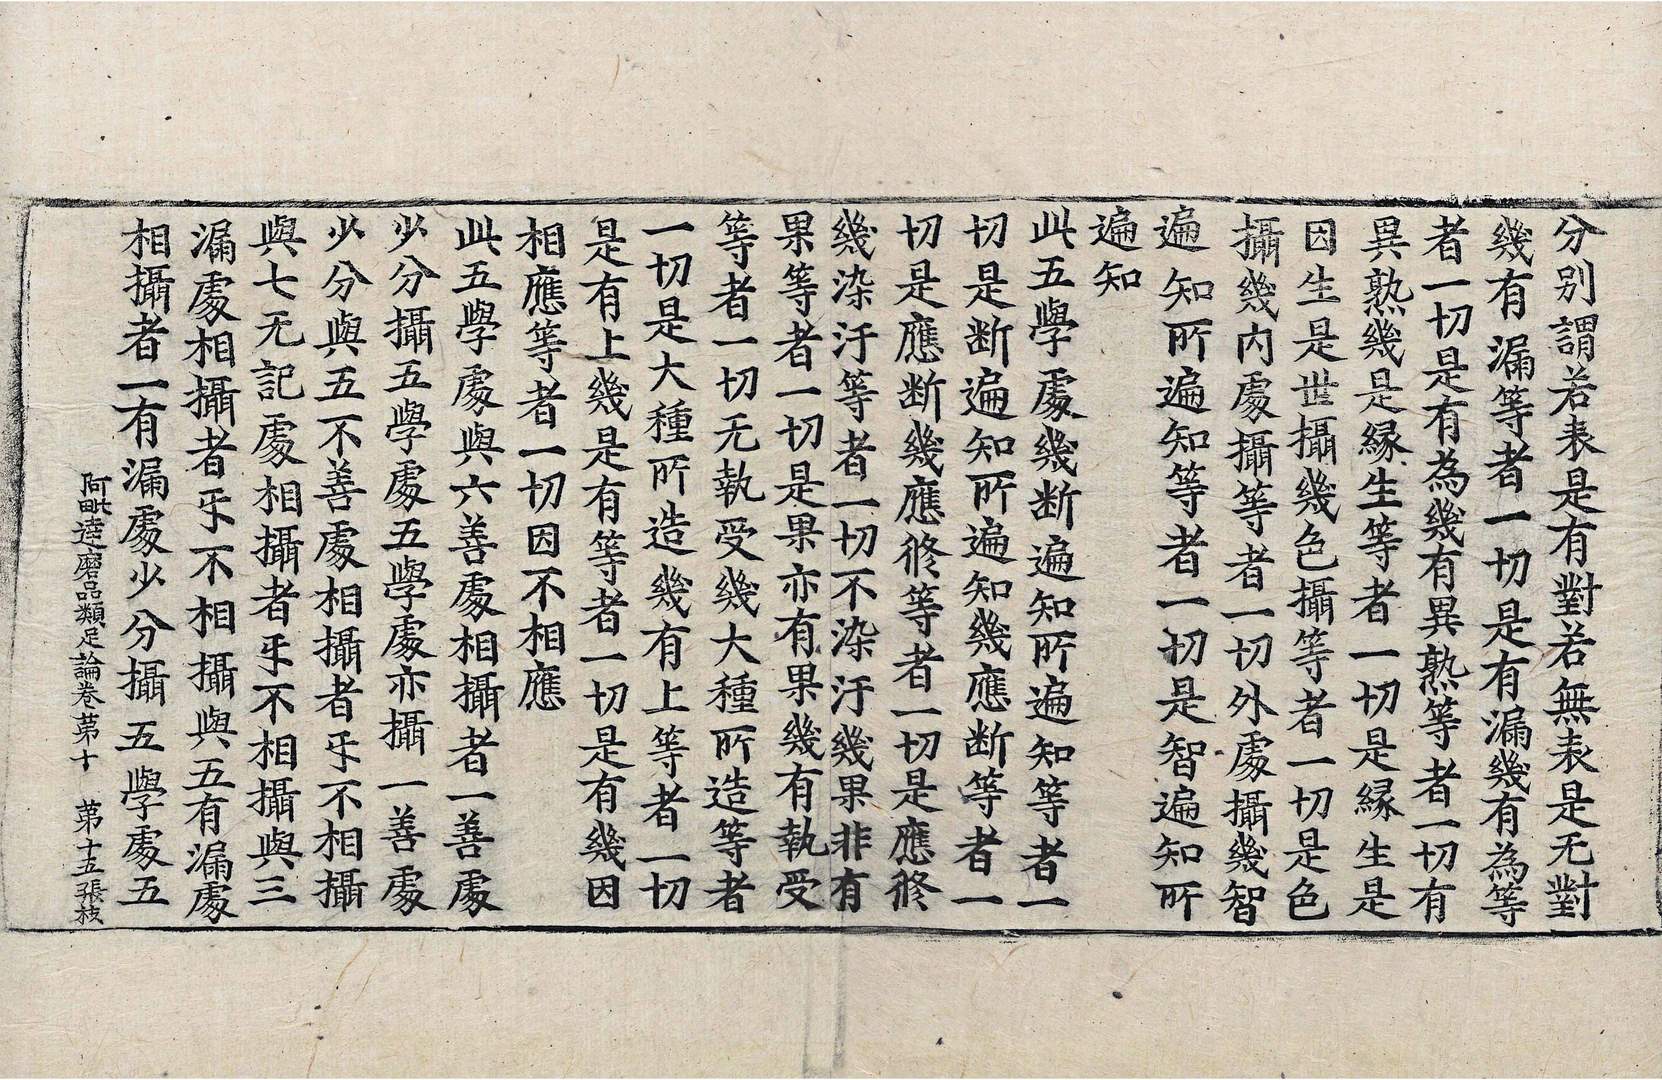 分別謂若表是有對若無表是无對
幾有漏等者一切是有漏幾有為等
者一切是有為幾有異熟等者一切有
異熟幾是縁生等者一切是縁生是
因生是世攝幾色攝等者一切是色
攝幾內處攝等者一切外處攝幾智
遍知所遍知等者一切是智遍知所
遍知
此五學處幾断遍知所遍知等者一
切是断遍知所遍知幾應断等者一
切是應断幾應修等者一切是應修
幾染汙等者一切不染汙幾果非有
果等者一切是果亦有果幾有執受
等者一切无執受幾大種所造等者
一切是大種所造幾有上等者一切
是有上幾是有等者一切是有幾因
相應等者一切因不相應
此五學處與六善處相攝者一善處
少分攝五學處五學處亦攝一善處
少分與五不善處相攝者𠄔不相攝
與七无記處相攝者𠄔不相攝與三
漏處相攝者𠄔不相攝與五有漏處
相攝者一有漏處少分攝五學處五
阿毗達磨品類足論卷苐十 苐十五張枝